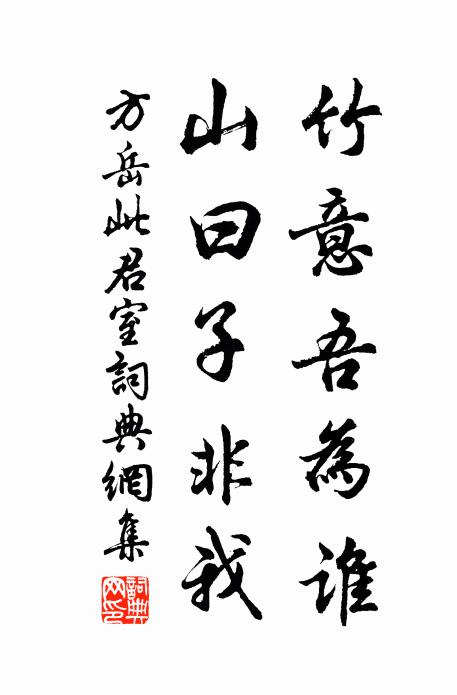 竹意吾為誰
山曰子非我
方岳此君室詞典網集
詞典網印